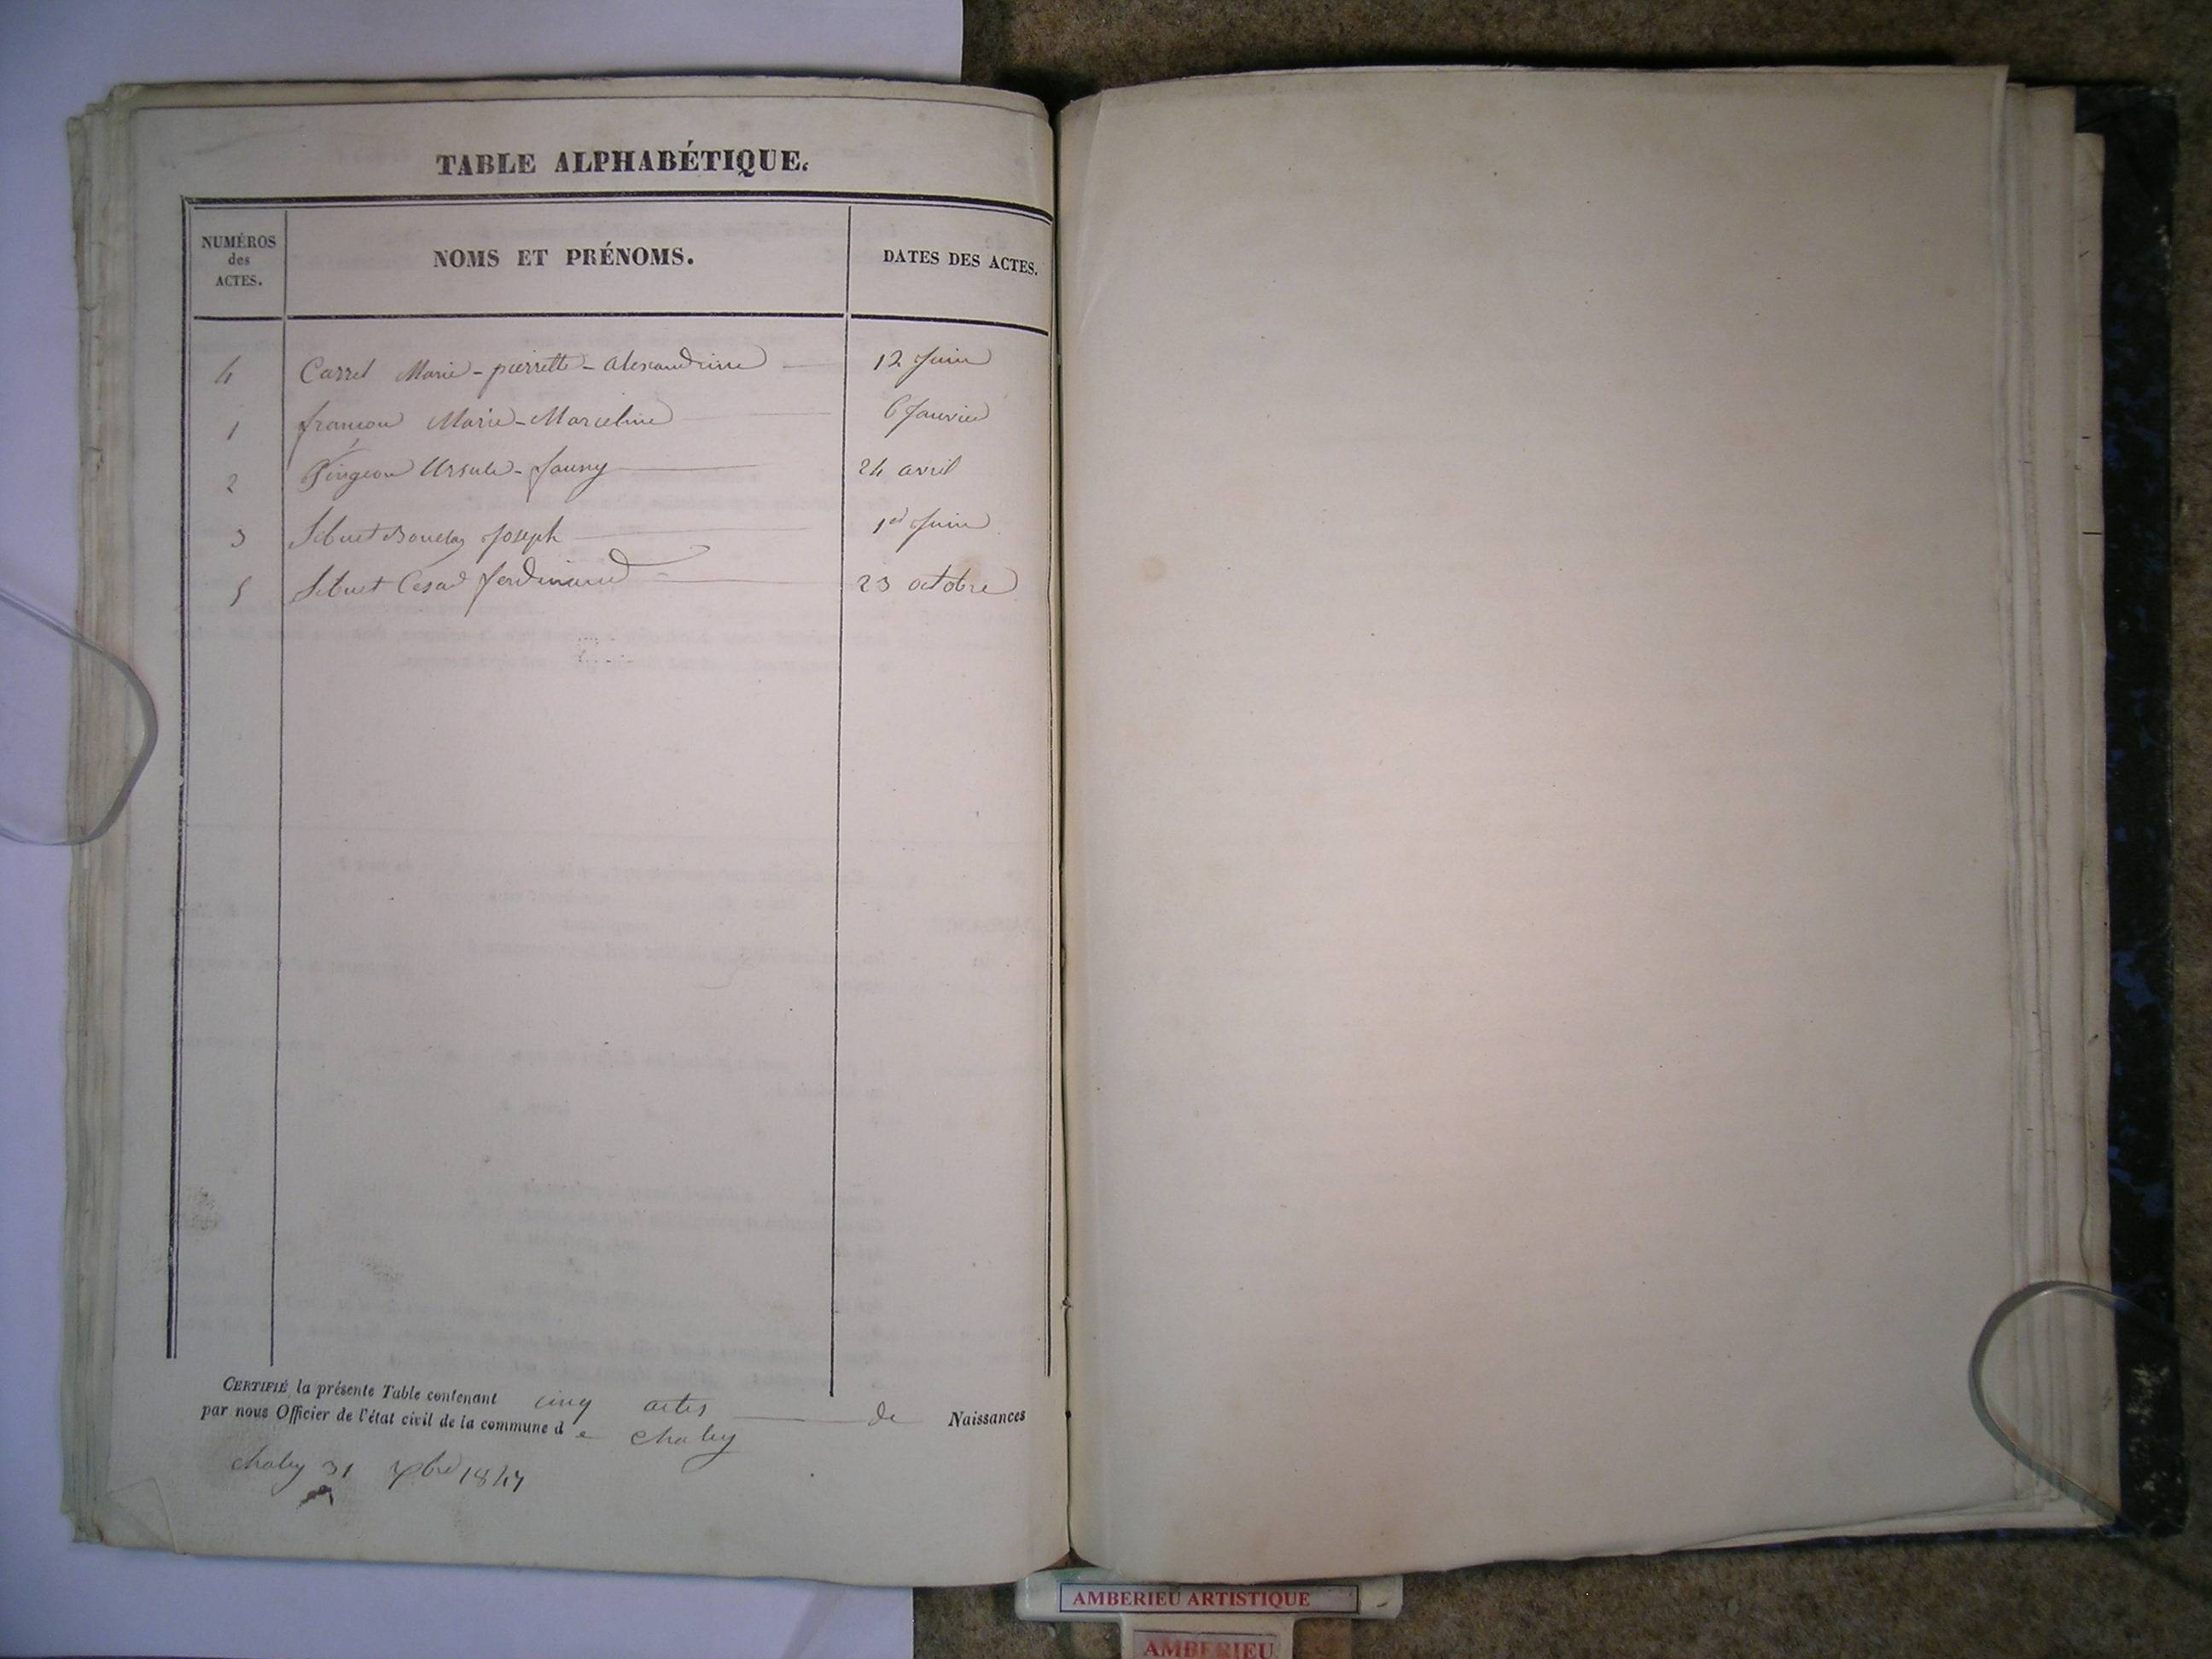 TABLE ALPHABÉTIQUE.
NUMÉROS des ACTES. NOMS ET PRÉNOMS. DATES DES ACTES.
4 Carrel Marie-pierrette-alexandrine 12 Juin
1 françon Marie-Marceline 6 Janvier
2 Pingeon Ursule-fanny 24 avril
3 Sibuet Joseph 1er Juin
5 Sibuet Cesar ferdinand 23 octobre
CERTIFIÉ la présente Table contenant cinq actes de Naissances
par nous Officier de l'état civil de la commune d e chaley
chaley 31 xbre 1847
AMBERIEU ARTISTIQUE
AMBERIEU